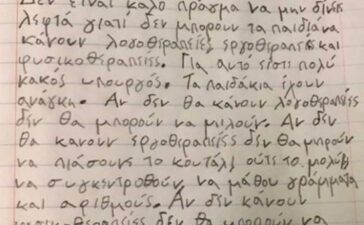 Δεν είναι καλό πράγμα να μην δίνεις
λεφτά γιατί δεν μπορούν τα παιδιά να
κάνουν λογοθεραπείες, εργοθεραπείες και
φυσικοθεραπείες. Για αυτό είστι πολύ
κακός υπουργός. Τα παιδάκια έχουν
ανάγκη. Αν δεν θα κάνουν λογοθεραπείες
δεν θα μπορούν να μιλούν. Αν δεν
θα κάνουν εργοθεραπείες δεν θα μπορούν
να πιάσουν το κουτάλι, ούτε το μολύβι
να συγκεντροθούν να μάθου γράμματα
και αριθμούς. Αν δεν κάνουν
φυσικοθεραπείες δεν θα μπορούν να